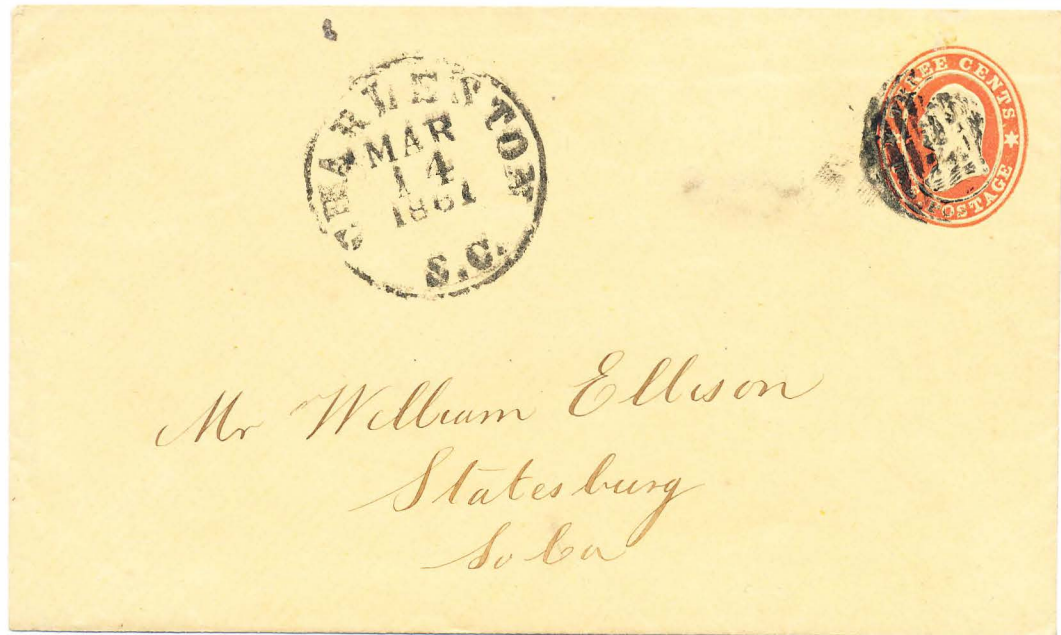 CHARLESTON
MAR
14
1861
S.C.
THREE CENTS
U.S. POSTAGE
Mr William Ellison
Statesburg
So Ca